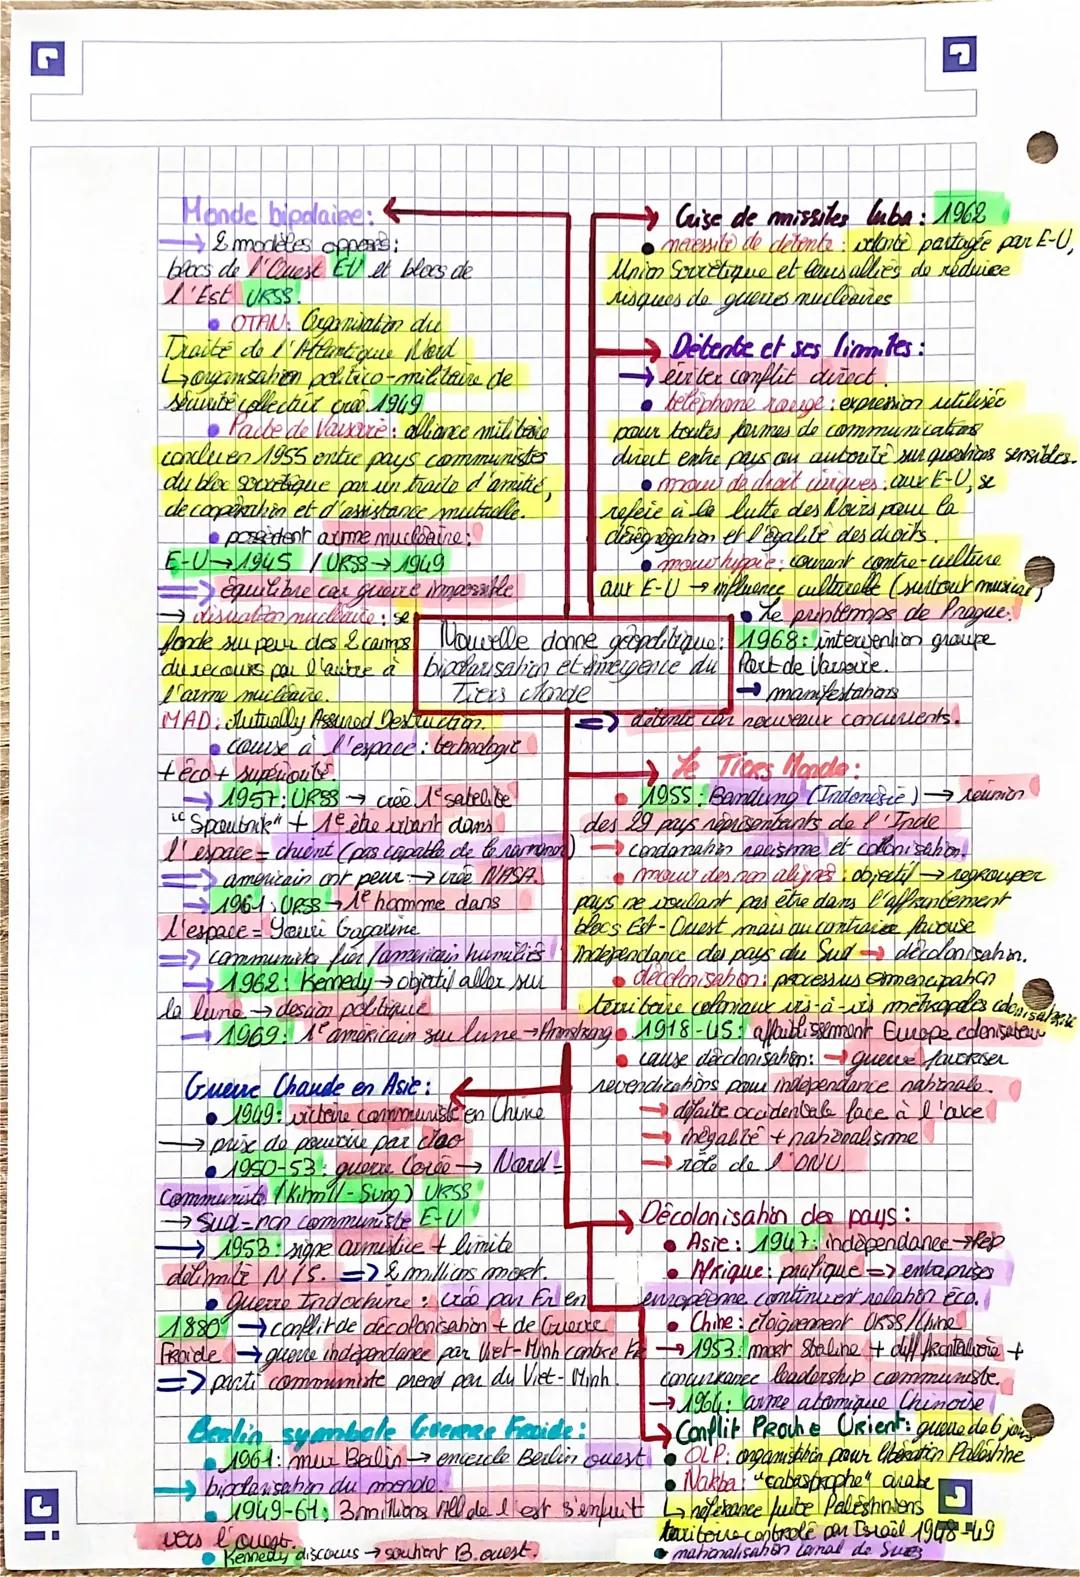 Monde bipolaire:
→ 2 modèles opposés:
blocs de l'Ouest EU et blocs de
l'Est URSS.
• OTAN: Organisation du
Traité de l'Atlantique Nord
↳ organisation politico-militaire de
sécurité collectif créé 1949
• Pacte de Varsovie: alliance militaire
conclu en 1955 entre pays communistes
du bloc soviétique par un traité d'amitié,
de coopération et d'assistance mutuelle.
• possèdent arme nucléaire:
E-U → 1945 / URSS → 1949
⇒ équilibre car guerre impossible
→ dissuasion nucléaire: se
fonde sur peur des 2 camps
du recours par l'autre à
l'arme nucléaire.
MAD: Mutually Assured Destruction.
• course à l'espace: technologie
+ éco + supériorité.
→ 1957: URSS → créé 1e satellite
"Spoutnik" + 1e être vivant dans
l'espace = chient (pas capable de le ramener)
⇒ américain ont peur → crée NASA.
→ 1961: URSS → 1e homme dans
l'espace = Youri Gagarine
⇒ communiste fier / américain humiliés
→ 1962: Kennedy → objectif aller sur
la lune → dessin politique
→ 1969: 1e américain sur lune → Armstrong
Guerre Chaude en Asie:
• 1949: victoire communiste en Chine
→ prise de pouvoir par Mao
• 1950-53: guerre Corée → Nord =
communiste (Kim Il-Sung) URSS
→ Sud = non communiste E-U
→ 1953: signe armistice + limite
délimité N/S. ⇒ 2 millions mort.
• guerre Indochine: créé par Fr en
1880 → conflit de décolonisation + de Guerre
Froide → guerre indépendance par Viet-Minh contre Fr
⇒ parti communiste prend par du Viet-Minh.
Berlin symbole Guerre Froide:
• 1961: mur Berlin → encercle Berlin ouest
→ bipolarisation du monde.
• 1949-61: 3 millions All de l'est s'enfuit
vers l'ouest.
• Kennedy, discours → soutient B. ouest.
Nouvelle donne géopolitique:
bipolarisation et émergence du
Tiers Monde
Crise de missiles Cuba: 1962
• nécessité de détente: volonté partagée par E-U,
Union Soviétique et leurs alliés de réduire
risques de guerres nucléaires
Détente et ses limites:
→ éviter conflit direct.
• téléphone rouge: expression utilisée
pour toutes formes de communications
direct entre pays ou autorité sur questions sensibles.
• mouv de droit civiques: aux E-U, se
refère à la lutte des Noirs pour la
déségrégation et l'égalité des droits.
• mouv hippie: courant contre-culture
aux E-U → influence culturelle (surtout musical)
• Le printemps de Prague:
1968: intervention groupe
Pact de Varsovie.
→ manifestations
⇒ détente car nouveaux concurrents.
Le Tiers Monde:
• 1955: Bandung (Indonésie) → réunion
des 29 pays représentants de l'Inde
→ condamation racisme et colonisation.
• mouv des non alignés: objectif → regrouper
pays ne voulant pas être dans l'affrontement
blocs Est-Ouest mais au contraire favorise
indépendance des pays du Sud → décolonisation.
• décolonisation: processus émancipation
territoire coloniaux vis-à-vis métropoles colonisatrice
• 1918-45: affaiblissement Europe colonisateur
• cause décolonisation: → guerre favoriser
revendications pour indépendance nationale.
→ défaite occidentale face à l'axe
→ inégalité + nationalisme
→ rôle de l'ONU.
Décolonisation des pays:
• Asie: 1947: indépendance → Rép
• Afrique: pacifique ⇒ entreprises
européenne continuent relation éco.
• Chine: éloignement URSS/Chine
→ 1953: mort Staline + diff frontalière +
concurrence leadership communiste.
→ 1964: arme atomique Chinoise
Conflit Proche Orient: guerre de 6 jours
• OLP: organisation pour libération Palestine
• Nakba: "catastrophe" arabe
↳ référence fuite Palestiniens
territoire contrôlé par Israël 1948-49
• nationalisation canal de Suez